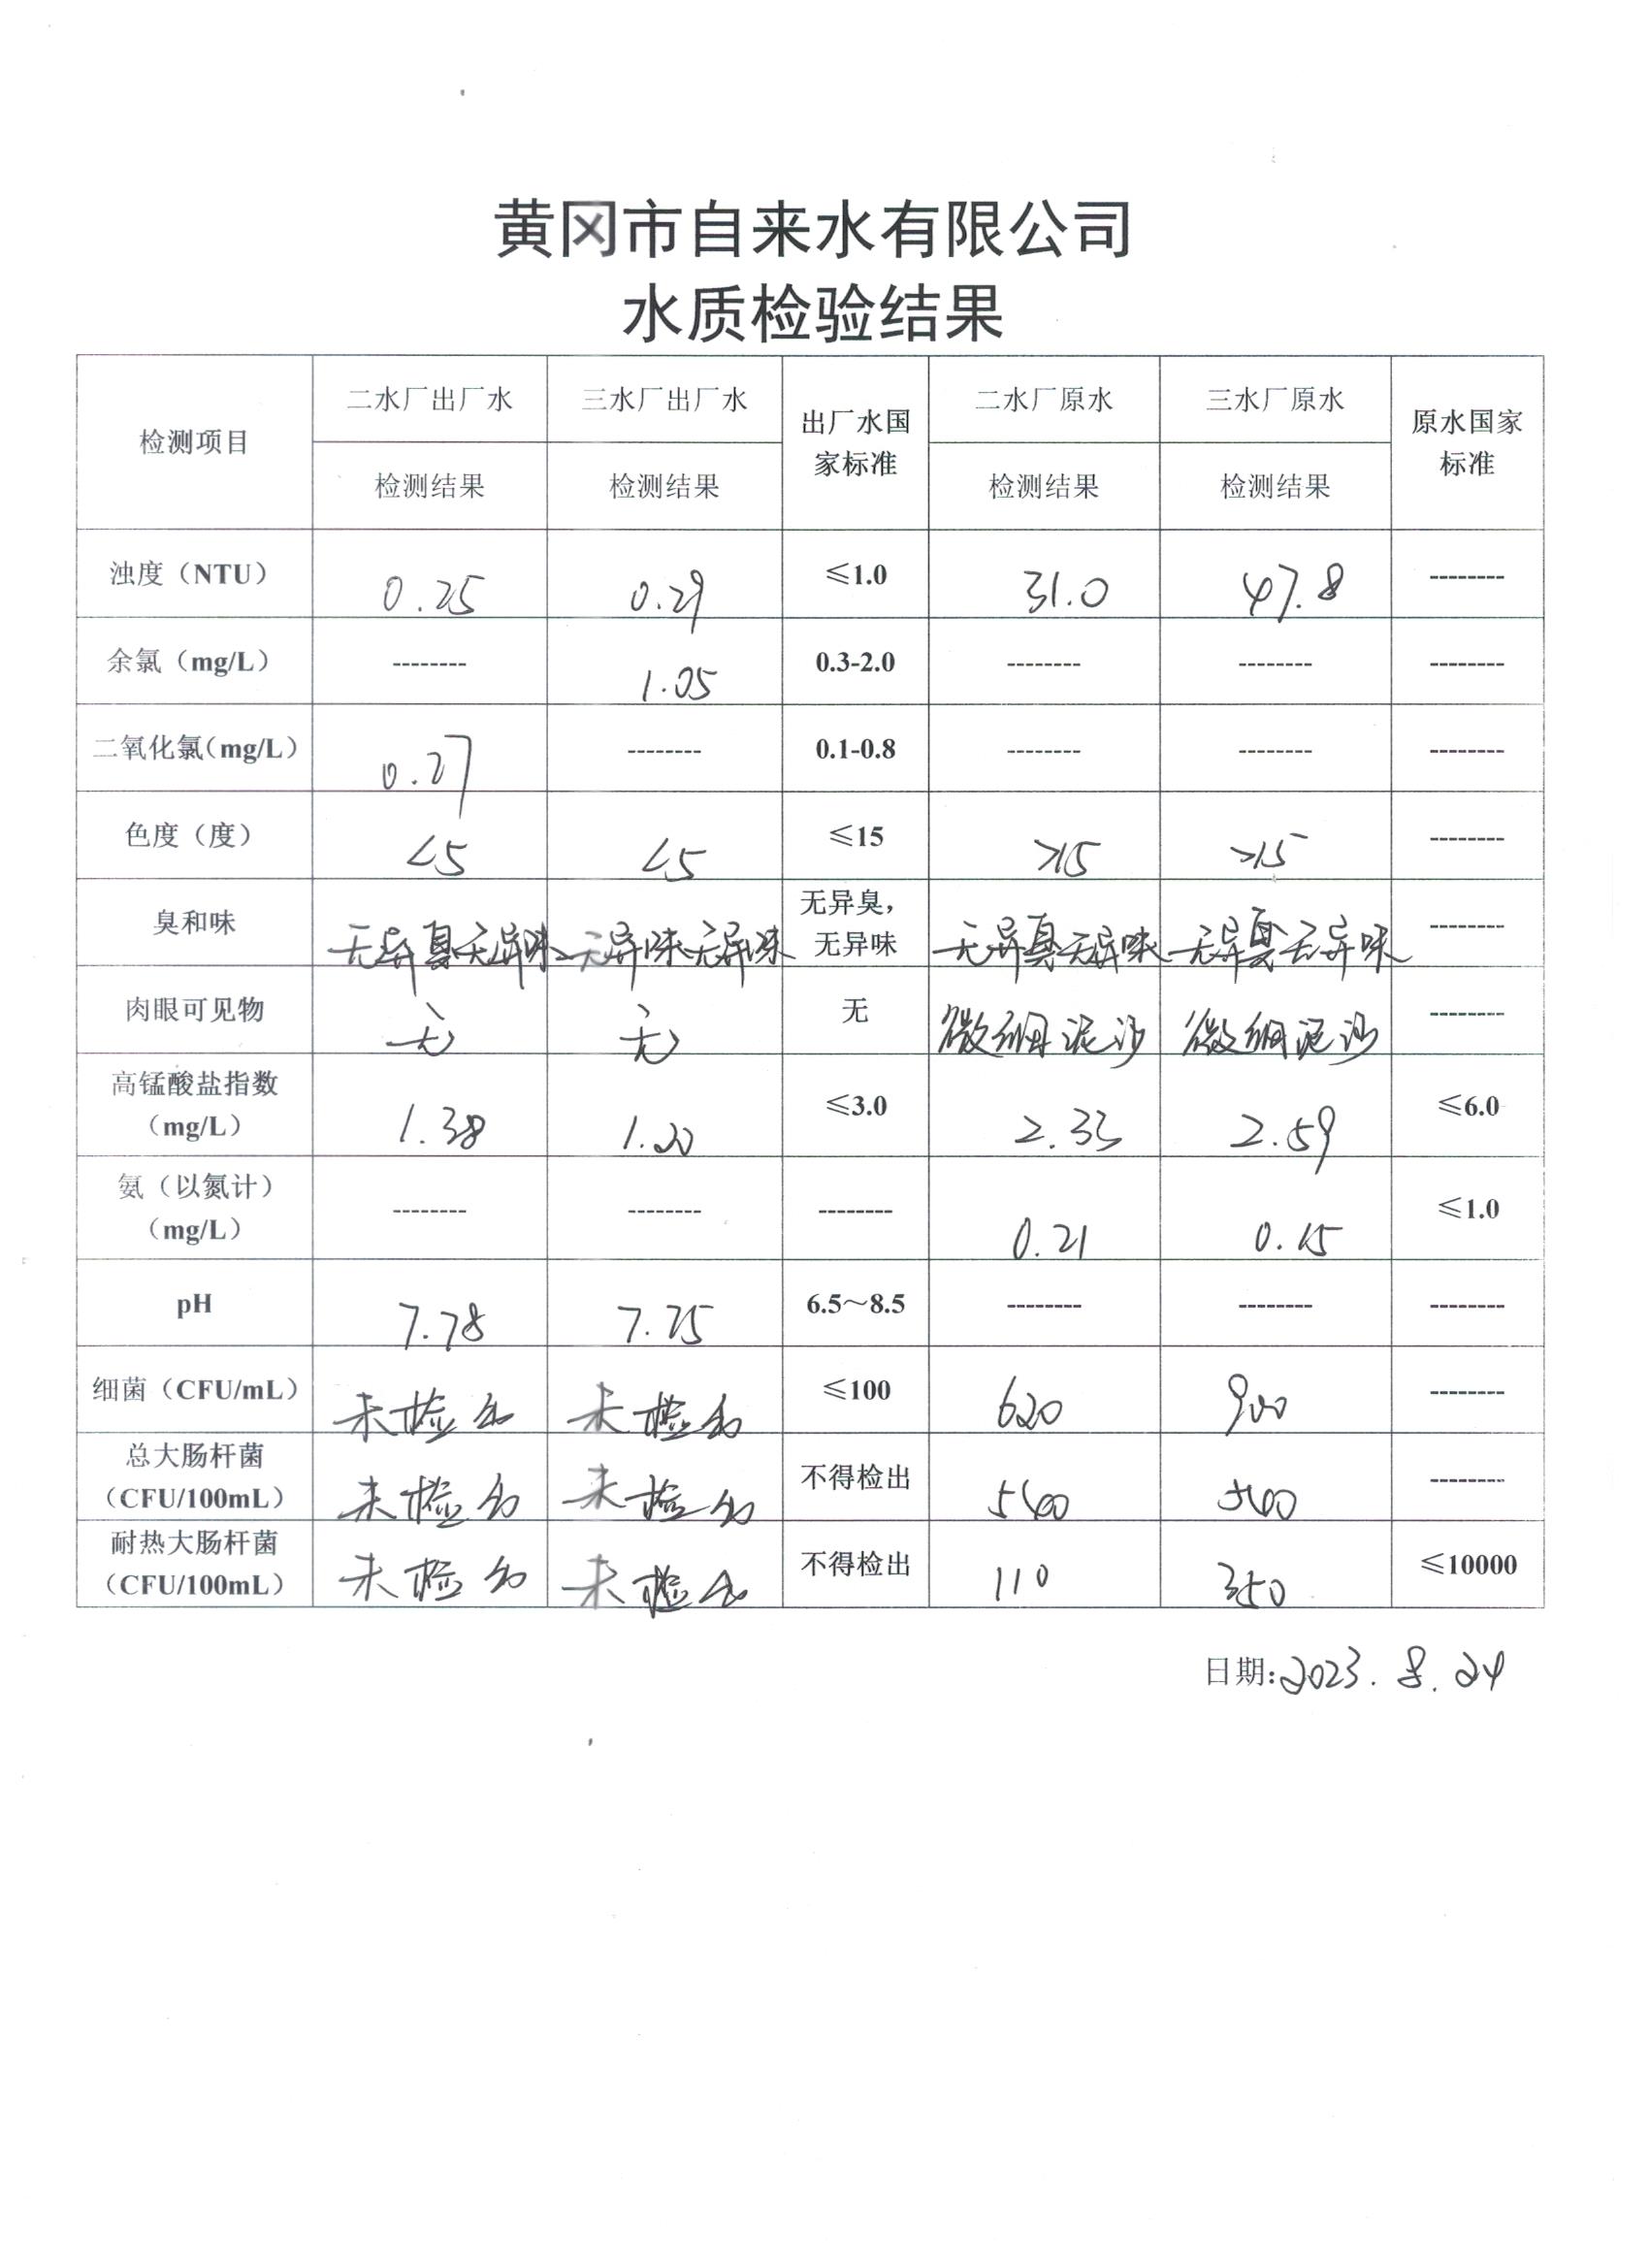 黄冈市自来水有限公司
水质检验结果
检测项目 二水厂出厂水 三水厂出厂水 出厂水国家标准 二水厂原水 三水厂原水 原水国家标准
检测结果 检测结果 检测结果 检测结果
浊度（NTU） 0.25 0.29 ≤1.0 31.0 47.8 --------
余氯（mg/L） -------- 1.05 0.3-2.0 -------- -------- --------
二氧化氯(mg/L) 0.27 -------- 0.1-0.8 -------- -------- --------
色度（度） <5 <5 ≤15 >15 >15 --------
臭和味 无异臭无异味 无异味无异味 无异臭，无异味 无异臭无异味 无异臭无异味 --------
肉眼可见物 无 无 无 微细泥沙 微细泥沙 --------
高锰酸盐指数（mg/L） 1.38 1.20 ≤3.0 2.33 2.59 ≤6.0
氨（以氮计）（mg/L） -------- -------- -------- 0.21 0.15 ≤1.0
pH 7.78 7.75 6.5～8.5 -------- -------- --------
细菌（CFU/mL） 未检出 未检出 ≤100 620 900 --------
总大肠杆菌（CFU/100mL） 未检出 未检出 不得检出 540 500 --------
耐热大肠杆菌（CFU/100mL） 未检出 未检出 不得检出 110 350 ≤10000
日期:2023.8.24